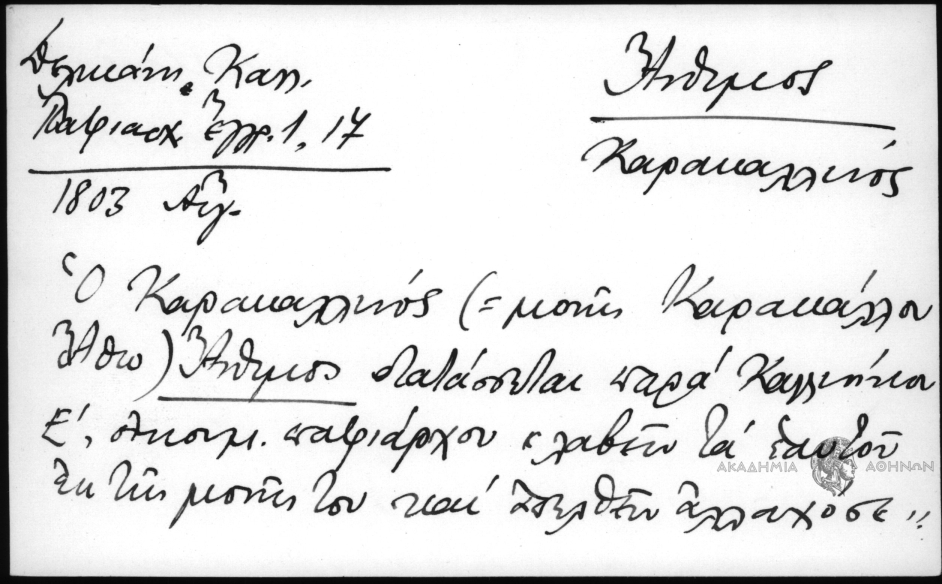 Δελικάνη, Καλλ.
Πατριαρχ. Ἔγγρ. 1, 17
1803 Αὔγ.
Ἄνθιμος
Καρακαλληνός
Ὁ Καρακαλληνός (= μονῆς Καρακάλλου
Ἄθω) Ἄνθιμος διατάσσεται παρά Καλλινίκου
Ε΄, οἰκουμ. πατριάρχου "λαβεῖν τά ἑαυτοῦ
ἐκ τῆς μονῆς του καί ἀπελθεῖν ἀλλαχόσε"
ΑΚΑΔΗΜΙΑ ΑΘΗΝΩΝ